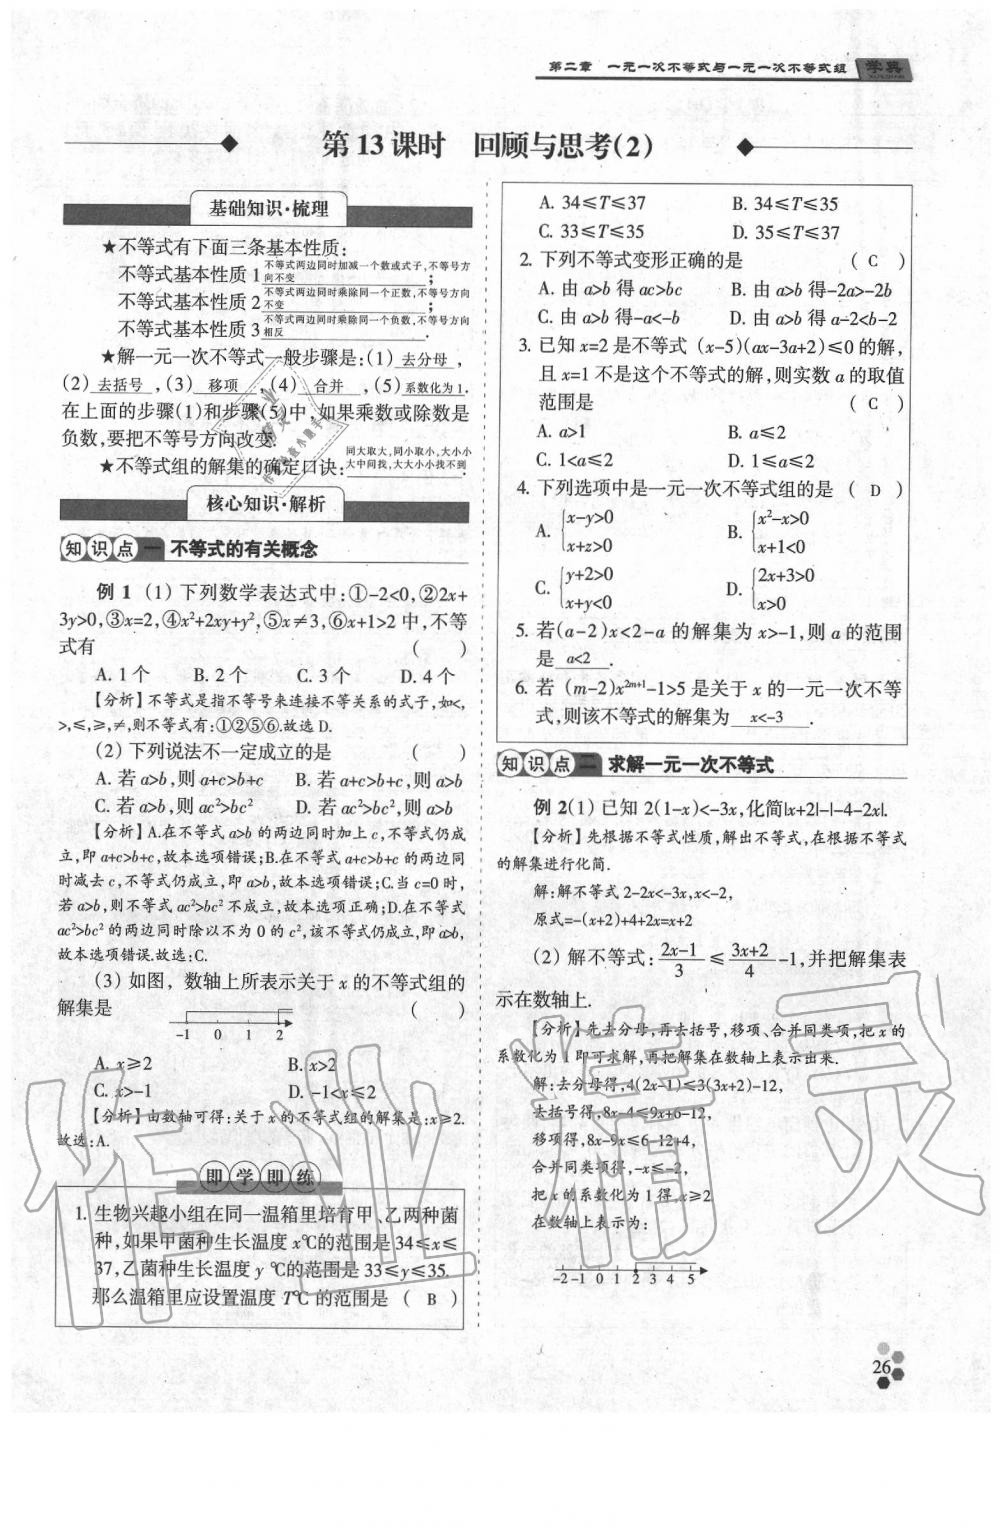 第二章 一元一次不等式与一元一次不等式组 学典
第13课时 回顾与思考(2)
基础知识·梳理
★不等式有下面三条基本性质:
不等式基本性质1 不等式两边同时加减一个数或式子,不等号方向不变 ;
不等式基本性质2 不等式两边同时乘除同一个正数,不等号方向不变 ;
不等式基本性质3 不等式两边同时乘除同一个负数,不等号方向相反 .
★解一元一次不等式一般步骤是:(1) 去分母 ,
(2) 去括号 ,(3) 移项 ,(4) 合并 ,(5) 系数化为1.
在上面的步骤(1)和步骤(5)中,如果乘数或除数是
负数,要把不等号方向改变.
★不等式组的解集的确定口诀: 同大取大,同小取小,大小小大中间找,大大小小找不到 .
核心知识·解析
知识点一 不等式的有关概念
例1 (1) 下列数学表达式中:①-2<0,②2x+
3y>0,③x=2,④x²+2xy+y²,⑤x≠3,⑥x+1>2中,不等
式有 ( )
A. 1个 B. 2个 C. 3个 D. 4个
【分析】不等式是指不等号来连接不等关系的式子,如<,
>,≤,≥,≠,则不等式有:①②⑤⑥.故选D.
(2) 下列说法不一定成立的是 ( )
A. 若a>b,则a+c>b+c B. 若a+c>b+c,则a>b
C. 若a>b,则ac²>bc² D. 若ac²>bc²,则a>b
【分析】A.在不等式a>b的两边同时加上c,不等式仍成
立,即a+c>b+c,故本选项错误;B.在不等式a+c>b+c的两边同
时减去c,不等式仍成立,即a>b,故本选项错误;C.当c=0时,
若a>b,则不等式ac²>bc²不成立,故本选项正确;D.在不等式
ac²>bc²的两边同时除以不为0的c²,该不等式仍成立,即a>b,
故本选项错误.故选:C.
(3) 如图, 数轴上所表示关于x的不等式组的
解集是 ( )
-1 0 1 2
A. x≥2 B. x>2
C. x>-1 D. -1<x≤2
【分析】由数轴可得:关于x的不等式组的解集是:x≥2.
故选:A.
即学即练
1. 生物兴趣小组在同一温箱里培育甲、乙两种菌
种,如果甲菌种生长温度x℃的范围是34≤x≤
37,乙菌种生长温度y℃的范围是33≤y≤35.
那么温箱里应设置温度T℃的范围是 ( B )
A. 34≤T≤37 B. 34≤T≤35
C. 33≤T≤35 D. 35≤T≤37
2. 下列不等式变形正确的是 ( C )
A. 由a>b得ac>bc B. 由a>b得-2a>-2b
C. 由a>b得-a<-b D. 由a>b得a-2<b-2
3. 已知x=2是不等式 (x-5)(ax-3a+2)≤0的解,
且x=1不是这个不等式的解,则实数a的取值
范围是 ( C )
A. a>1 B. a≤2
C. 1<a≤2 D. 1≤a≤2
4. 下列选项中是一元一次不等式组的是 ( D )
A. {x-y>0 x+z>0 B. {x²-x>0 x+1<0
C. {y+2>0 x+y<0 D. {2x+3>0 x>0
5. 若(a-2)x<2-a的解集为x>-1,则a的范围
是 a<2 .
6. 若 (m-2)x²ᵐ⁺¹-1>5是关于x的一元一次不等
式,则该不等式的解集为 x<-3 .
知识点二 求解一元一次不等式
例2(1) 已知2(1-x)<-3x,化简|x+2|-|-4-2x|.
【分析】先根据不等式性质,解出不等式,在根据不等式
的解集进行化简.
解:解不等式2-2x<-3x,x<-2,
原式=-(x+2)+4+2x=x+2
(2) 解不等式: (2x-1)/3 ≤ (3x+2)/4 -1,并把解集表
示在数轴上.
【分析】先去分母,再去括号,移项、合并同类项,把x的
系数化为1即可求解,再把解集在数轴上表示出来.
解:去分母得,4(2x-1)≤3(3x+2)-12,
去括号得,8x-4≤9x+6-12,
移项得,8x-9x≤6-12+4,
合并同类项得,-x≤-2,
把x的系数化为1得,x≥2
在数轴上表示为:
-2 -1 0 1 2 3 4 5
26
作业精灵